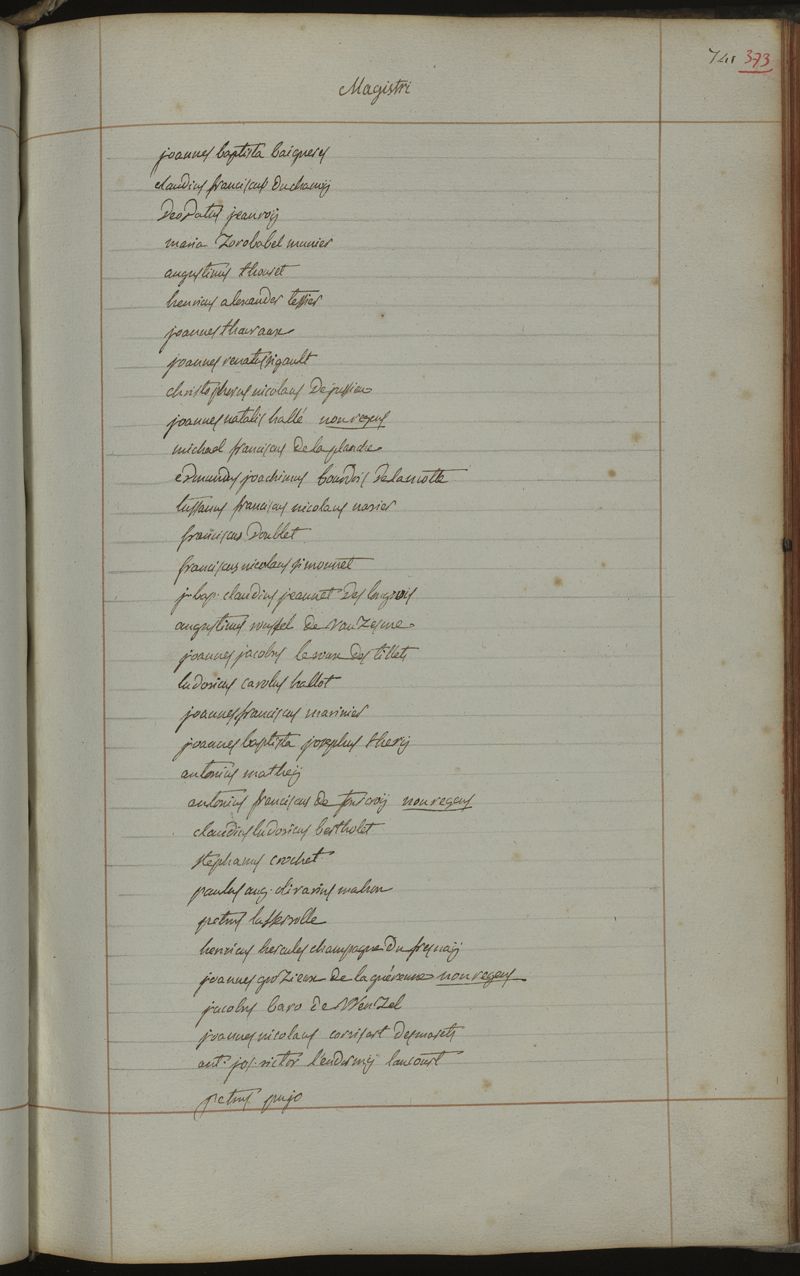 741 373
Magistri
joannes baptista baigneres
claudius franciscus duchanoÿ
deodatus jeanroÿ
maria Zorobabel munier
augustinus thouret
henricus alexander tessier
joannes tharaux
joannes renatus sigault
christopherus nicolaus dejussieu
joannes natalis hallé non regens
michael franciscus de la planche
edmundus joachimus bourdois delamotte
tussanus franciscus nicolaus navier
franciscus doublet
franciscus nicolaus simonnet
j. bap. claudius jeannet des longrois
augustinus roussel de Vauzesme
joannes jacobus leroux des tillets
ludovicus carolus hallot
joannes franciscus marinier
joannes baptista josephus therÿ
antonius matheÿ
antonius franciscus de fourcroÿ non regens
claudius ludovicus bertholet
stephanus crochet
paulus aug. olivarius mahon
petrus lasservolle
henricus hercules champagne du fresnaÿ
joannes grozieux de laguérenne non regens
jacobus baro de Wenzel
joannes nicolaus corvisart desmarets
ant. jos. victor lendormÿ laucourt
petrus pujo